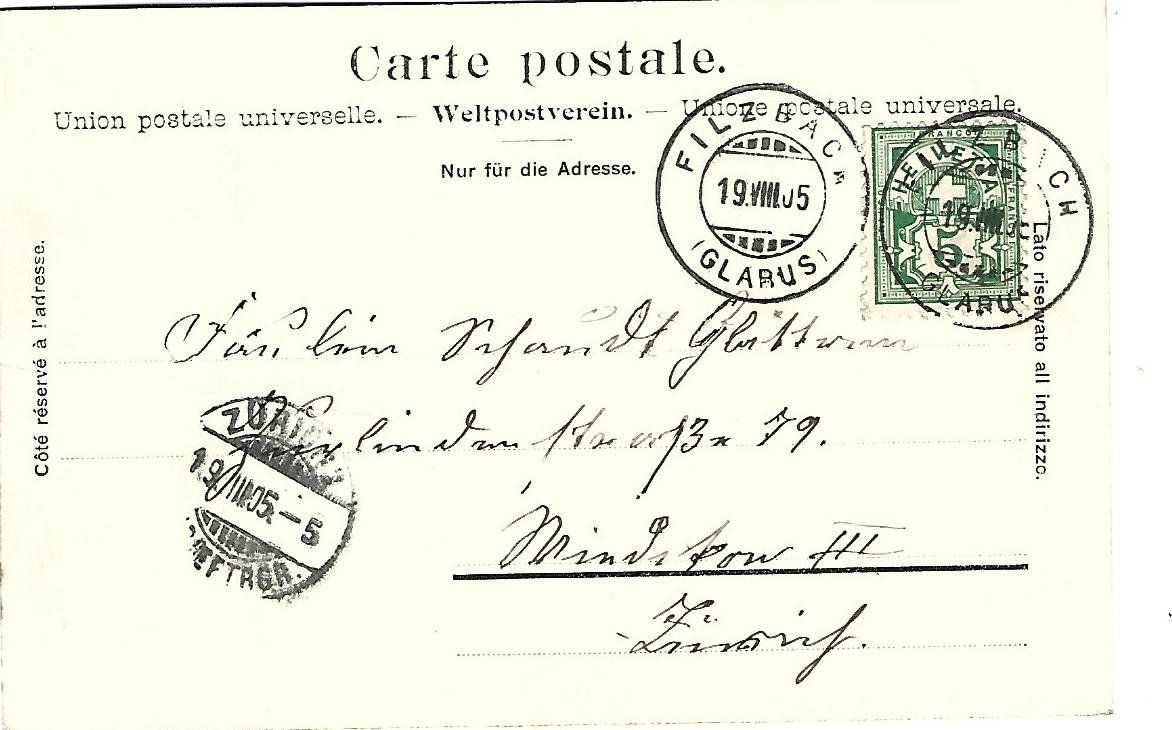 Carte postale.
Union postale universelle. — Weltpostverein. — Unione postale universale.
Nur für die Adresse.
FILZBACH
19.VIII.05
(GLARUS)
FRANCO
HELVETIA
FRANCO
5
19.VIII.05
GLARUS
Côté réservé à l'adresse.
Lato riservato all indirizzo.
Fräulein Schaudt
ZÜRICH
19.VIII.05.–5
BRIEFTRGR.
straße 79.
III
Zürich.